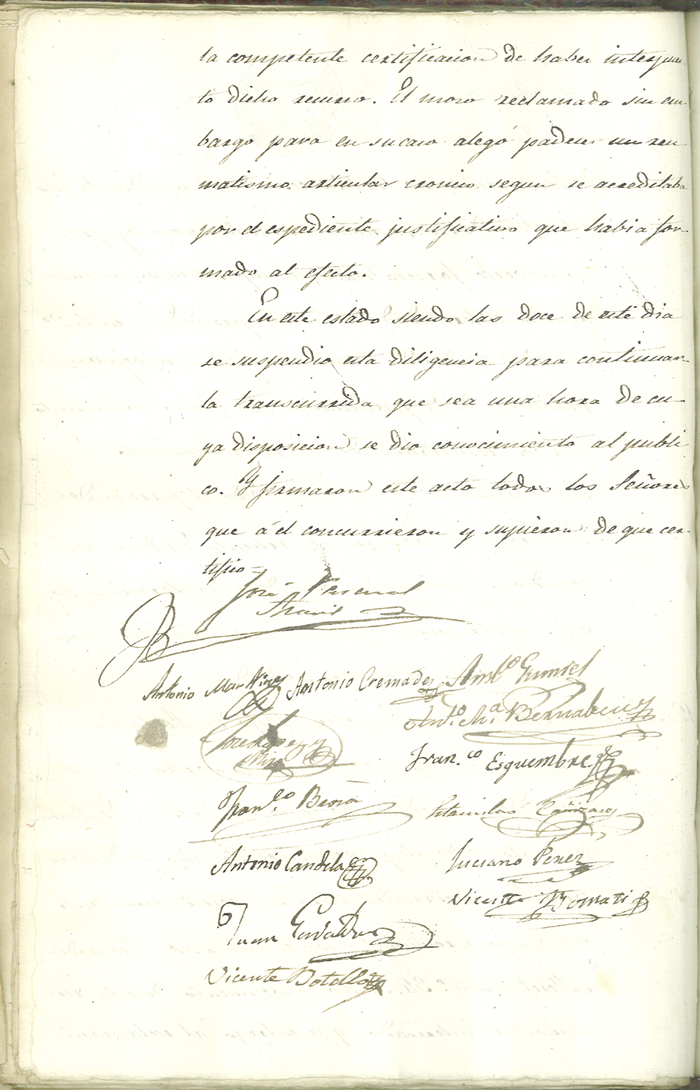 la competente certificacion de haber interpues
to dicho recurso. El mozo reclamado sin em
bargo para en su caso alegó padecer un reu
matismo articular cronico segun se acreditaba
por el espediente justificativo que habia for-
mado al efecto.
En este estado siendo las doce de este dia
se suspendio esta diligencia para continuar
la transcurrida que sea una hora de cu-
ya disposicion se dio conocimiento al publi-
co. Y firmaron este acto todos los Señores
que á el concurrieron y supieron de que cer-
tifico=
José Pascual
Antonio Martinez Antonio Cremades Amb.º Gumiel
Ant.º M.ª Bernabeu
Fran.co Esquembre
Fran.co Berná
Estanislao
Antonio Candela
Luciano Perez
Vicente Bomati
Juan
Vicente Botella